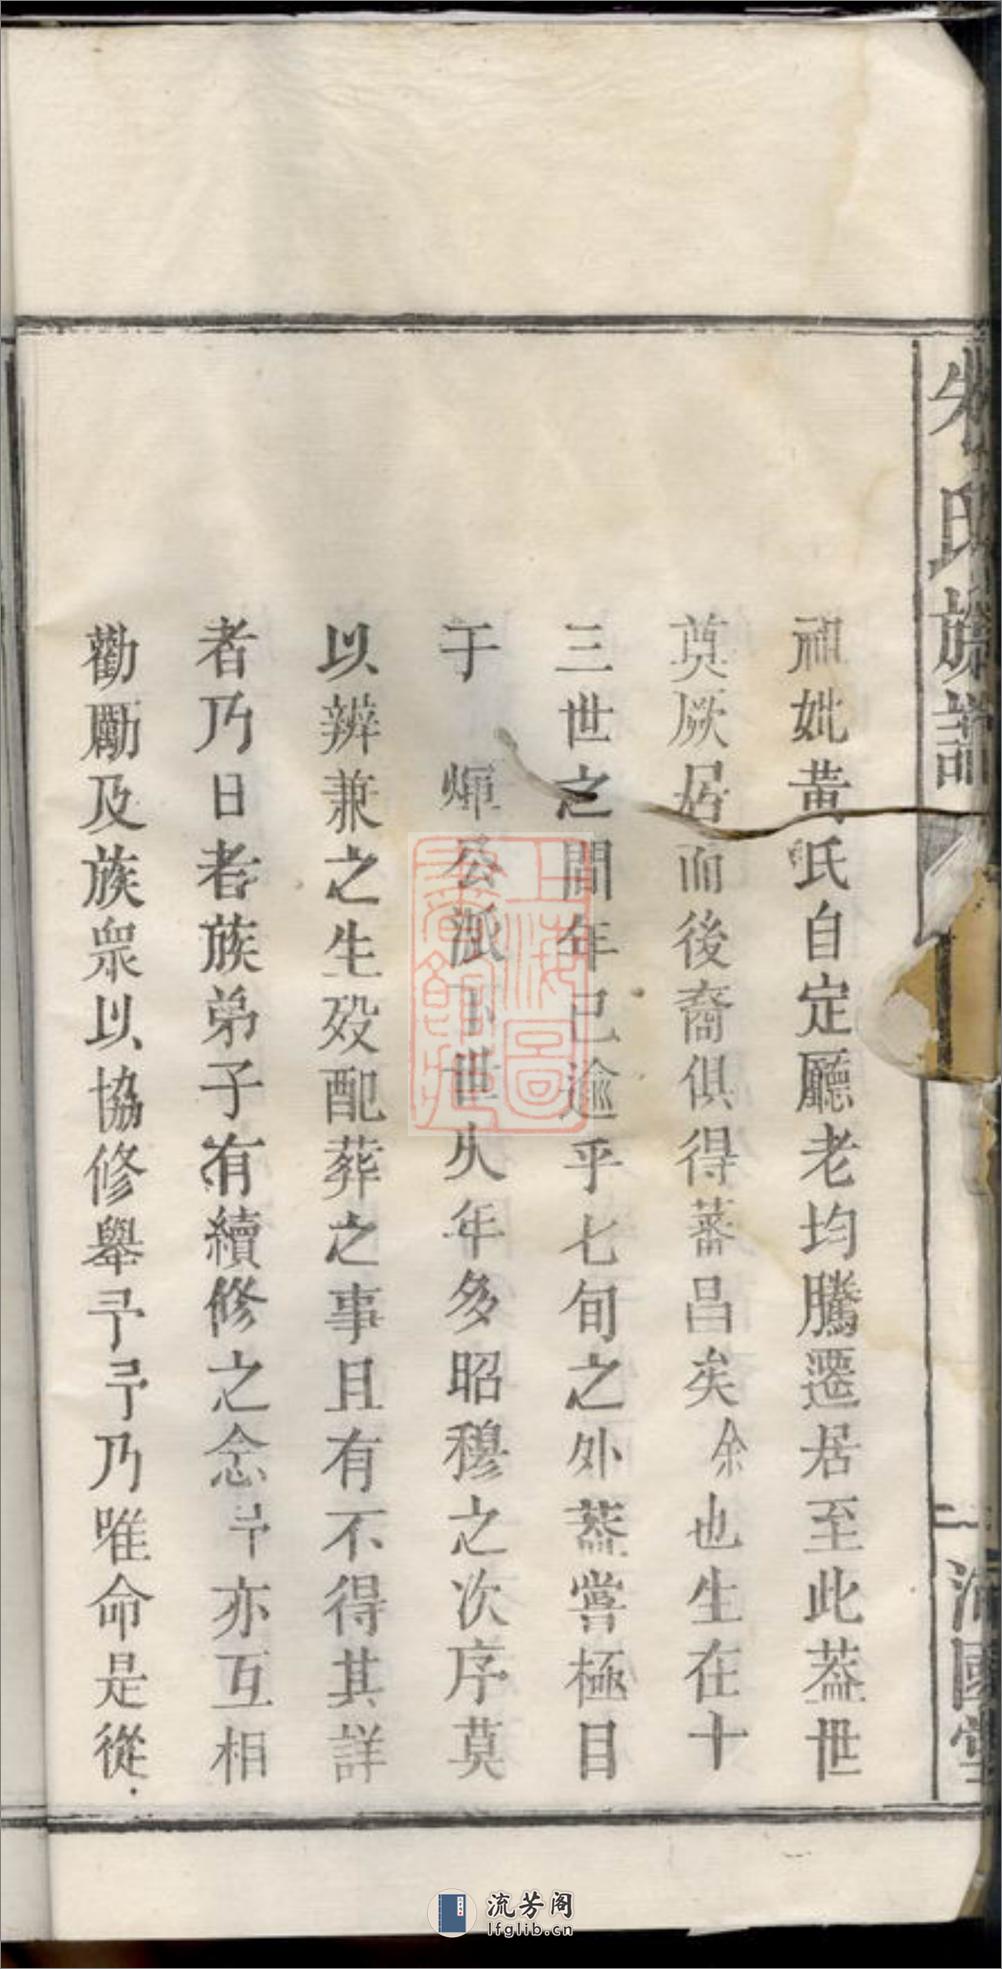 氏族譜
二
沛國堂
祖妣黃氏自定廳老均騰遷居至此葢世
奠厥居而後裔俱得蕃昌矣余也生在十
三世之間年已逾乎七旬之外葢嘗極目
于 煇公派下世久年多昭穆之次序莫
以辨兼之生歿配葬之事且有不得其詳
者乃日者族弟子有續修之念予亦互相
勸勵及族眾以協修舉予予乃唯命是從
上海圖
書館藏
流芳阁
lfglib.cn